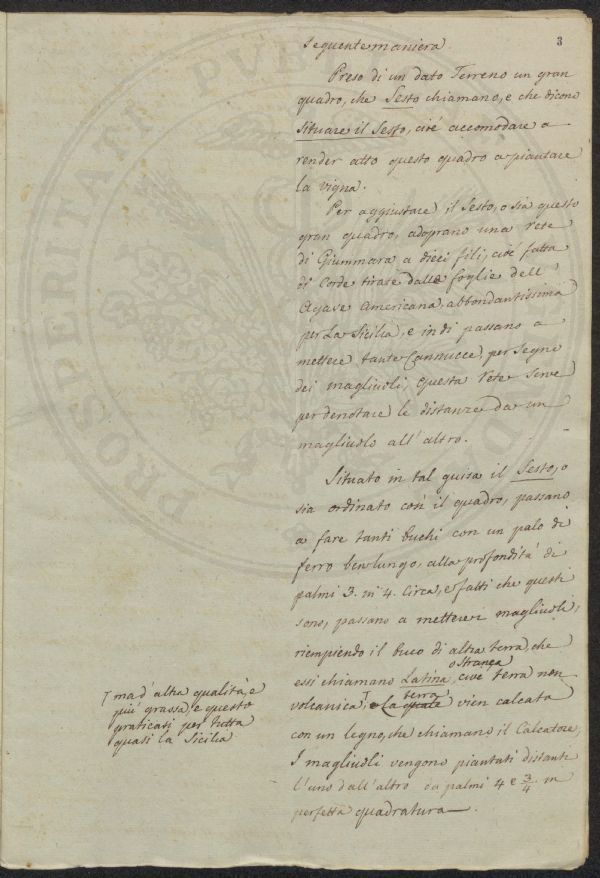 3
seguente maniera.
Preso di un dato Terreno un gran
quadro, che Sesto chiamano, e che dicono
situare il Sesto, cioè accomodare a
render atto questo quadro a piantare
la vigna.
Per aggiustare il Sesto, o sia questo
gran quadro, adoprano una rete
di Giummara a dieci fili, cioè fatta
di Corde tirate dalle foglie dell'
Agave Americana, abbondantissima
per la Sicilia, e indi passano a
mettere tante Cannucce, per segni
dei magliuoli; questa rete serve
per denotare le distanze da un
magliuolo all'altro.
Situato in tal guisa il Sesto, o
sia ordinato così il quadro, passano
a fare tanti buchi con un palo di
ferro ben lungo, alla profondità di
palmi 3. in 4. Circa, e fatti che questi
sono, passano a mettere i magliuoli,
riempiendo il buco di altra terra, che
o stranea
essi chiamano Latina, cioè terra non
volcanica, e la quale vien calcata
terra
con un legno, che chiamano il Calcatore,
I magliuoli vengono piantati distanti
l'uno dall'altro da palmi 4 e 3/4 in
perfetta quadratura.
ma d'altra qualità, e
più grassa, e questo
praticasi per tutta
quasi la Sicilia
PUBL
PROSPERITATI